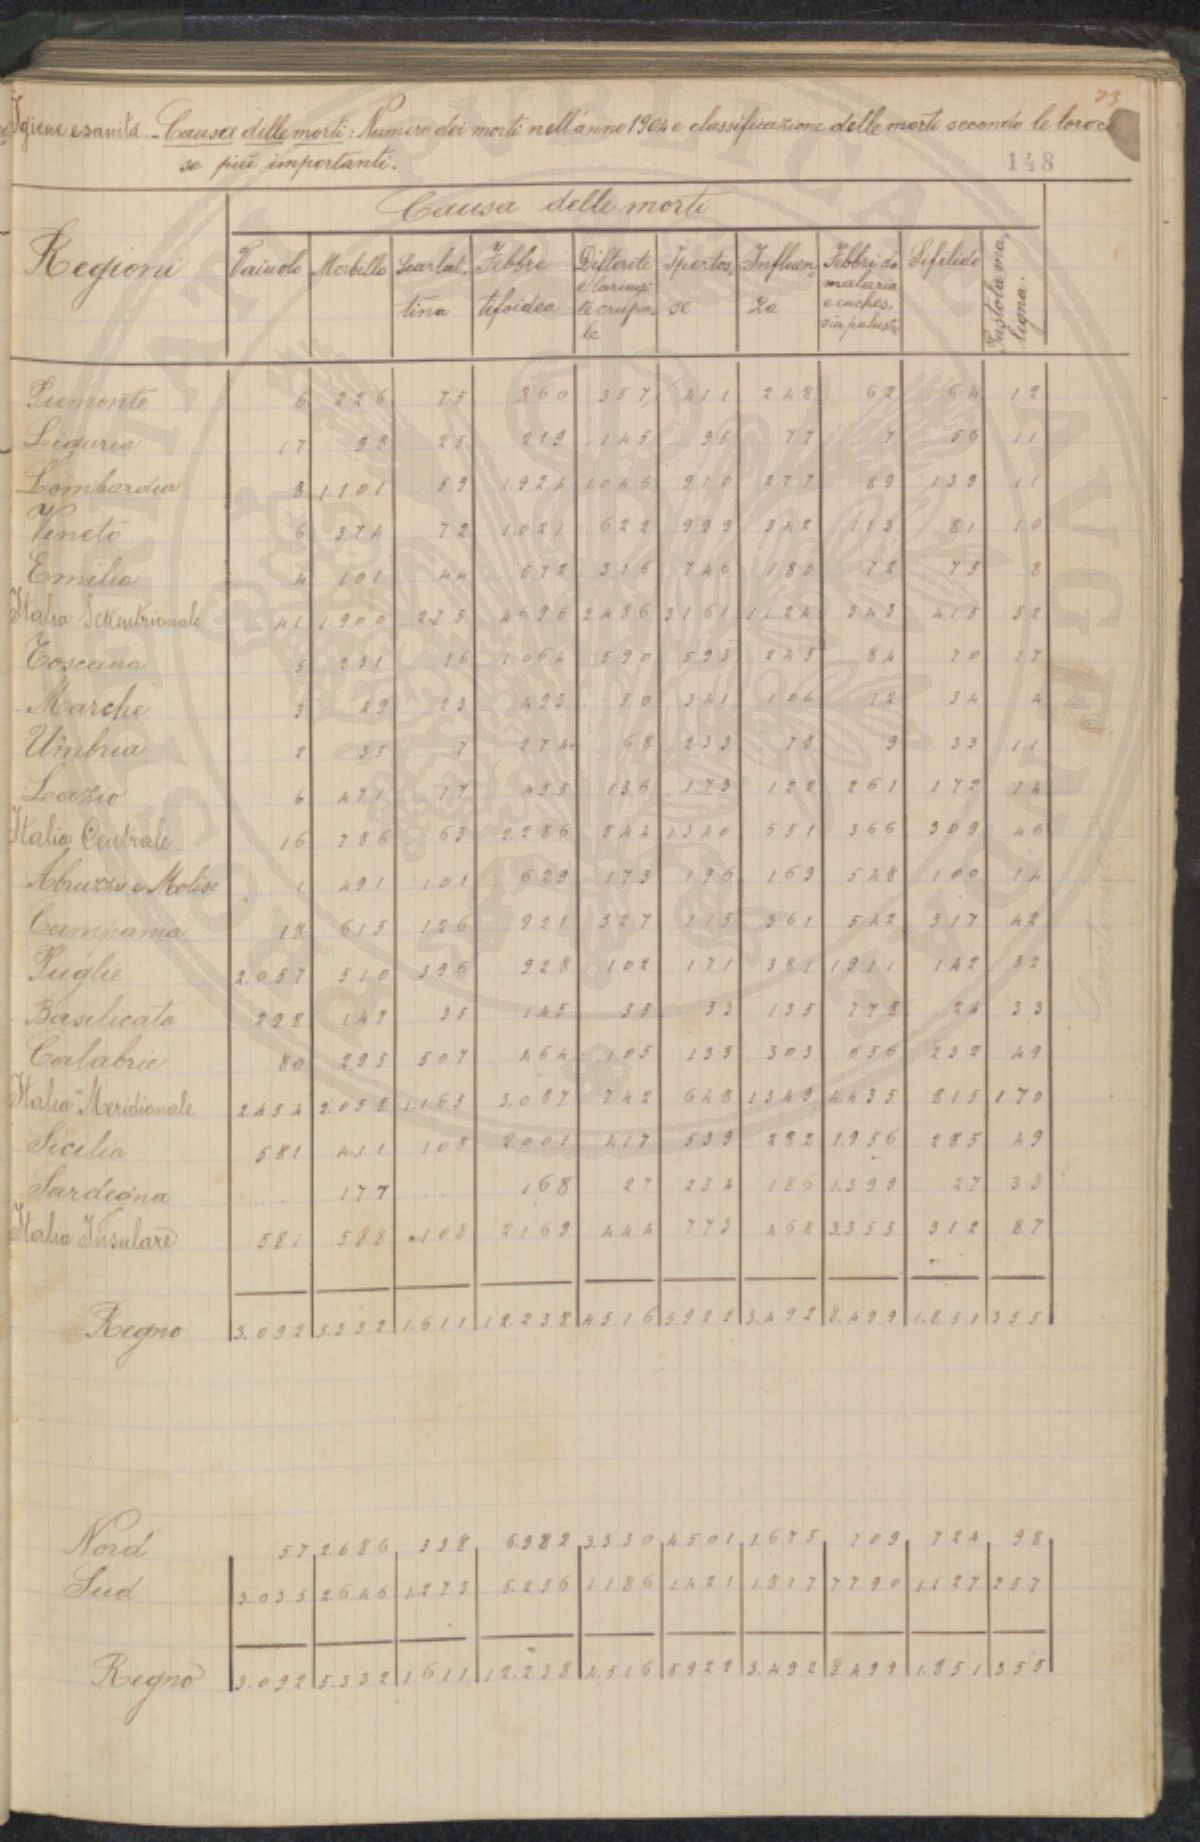 73
Igiene e sanità. - Causa delle morti: Numero dei morti nell'anno 1904 e classificazione delle morti secondo le loro ca
se più importanti.
148
Causa delle morti
Regioni Vaiuolo Morbillo Scarlat- Febbre Difterite Ipertos- Influen- Febbri da Sifilide Pustola ma-
tina tifoidea e laringi se za malaria ligna.
te crupa- e caches-
le sia palustre
Piemonte 6 226 75 860 357 411 248 62 64 12
Liguria 17 98 25 219 145 95 77 7 56 11
Lombardia 8 1.101 59 1.924 1.046 910 277 89 139 11
Veneto 6 374 72 1.021 622 999 342 113 81 10
Emilia 4 101 44 672 316 746 180 72 75 8
Italia Settentrionale 41 1.900 275 4696 2486 3161 1.124 343 415 52
Toscana 5 231 16 1.064 590 593 245 84 70 17
Marche 3 49 23 493 50 341 106 12 34 4
Umbria 2 35 7 274 68 233 78 9 33 11
Lazio 6 471 17 455 136 173 122 261 172 14
Italia Centrale 16 786 63 2.286 844 1.340 551 366 309 46
Abruzzi e Molise 1 491 101 629 173 196 169 548 100 14
Campania 18 615 126 921 327 115 361 542 317 42
Puglie 2.057 510 396 928 102 171 381 1.911 142 32
Basilicata 298 147 35 145 35 33 135 778 24 33
Calabrie 80 295 507 464 105 133 303 656 232 49
Italia Meridionale 2.454 2.058 1.165 3.087 742 648 1.349 4.435 815 170
Sicilia 581 411 108 2.001 417 539 282 1.956 285 49
Sardegna . 177 . . 168 27 234 186 1.399 27 38
Italia Insulare 581 588 108 2169 444 773 468 3.355 312 87
Regno 3.092 5.332 1.611 12.238 4.516 5922 3.492 8.499 1.851 355
Nord 57 2.686 338 6.982 3.330 4.501 1.675 709 724 98
Sud 3.035 2.646 1.273 5.256 1.186 1.421 1.817 7.790 1.127 257
Regno 3.092 5.332 1.611 12.238 4.516 5922 3.492 8.499 1.851 355